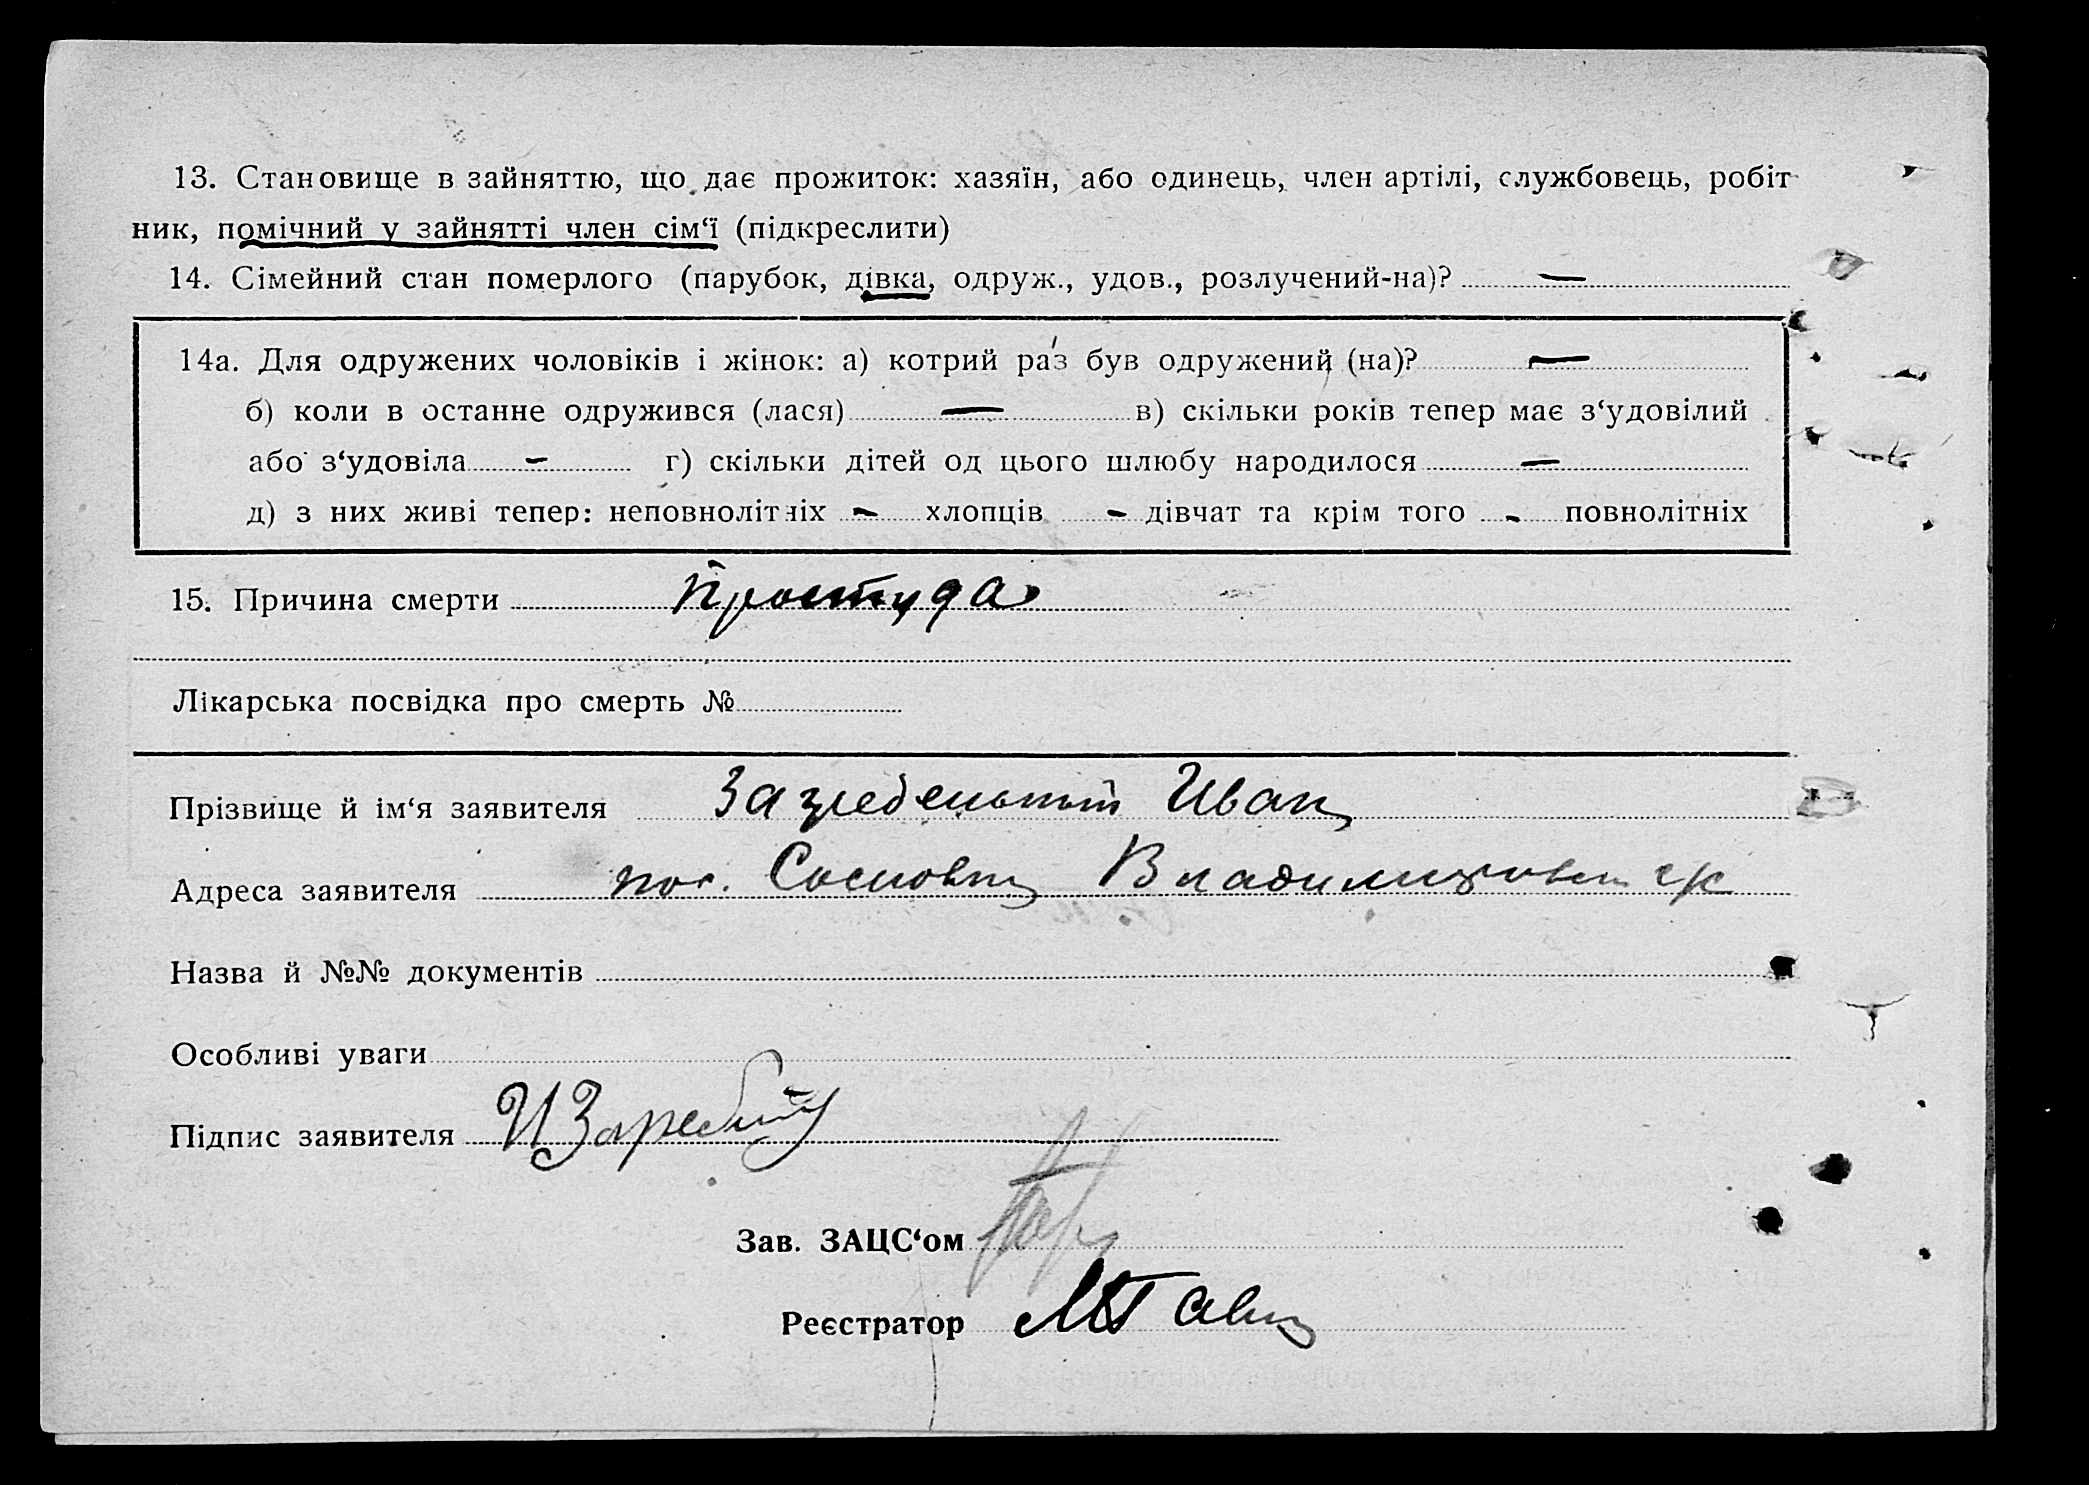 13. Становище в зайняттю, що дає прожиток: хазяїн, або одинець, член артілі, службовець, робіт
ник, помічний у зайнятті член сім‘ї (підкреслити)
14. Сімейний стан померлого (парубок, дівка, одруж., удов., розлучений-на)? —
14а. Для одружених чоловіків і жінок: а) котрий раз був одружений (на)? —
б) коли в останне одружився (лася) — в) скільки років тепер має з‘удовілий
або з‘удовіла — г) скільки дітей од цього шлюбу народилося —
д) з них живі тепер: неповнолітніх - хлопців - дівчат та крім того - повнолітніх
15. Причина смерти Простуда
Лікарська посвідка про смерть №
Прізвище й ім‘я заявителя Загребельный Иван
Адреса заявителя пос. Сосновка
Назва й №№ документів
Особливі уваги
Підпис заявителя
Зав. ЗАЦС‘ом
Реєстратор